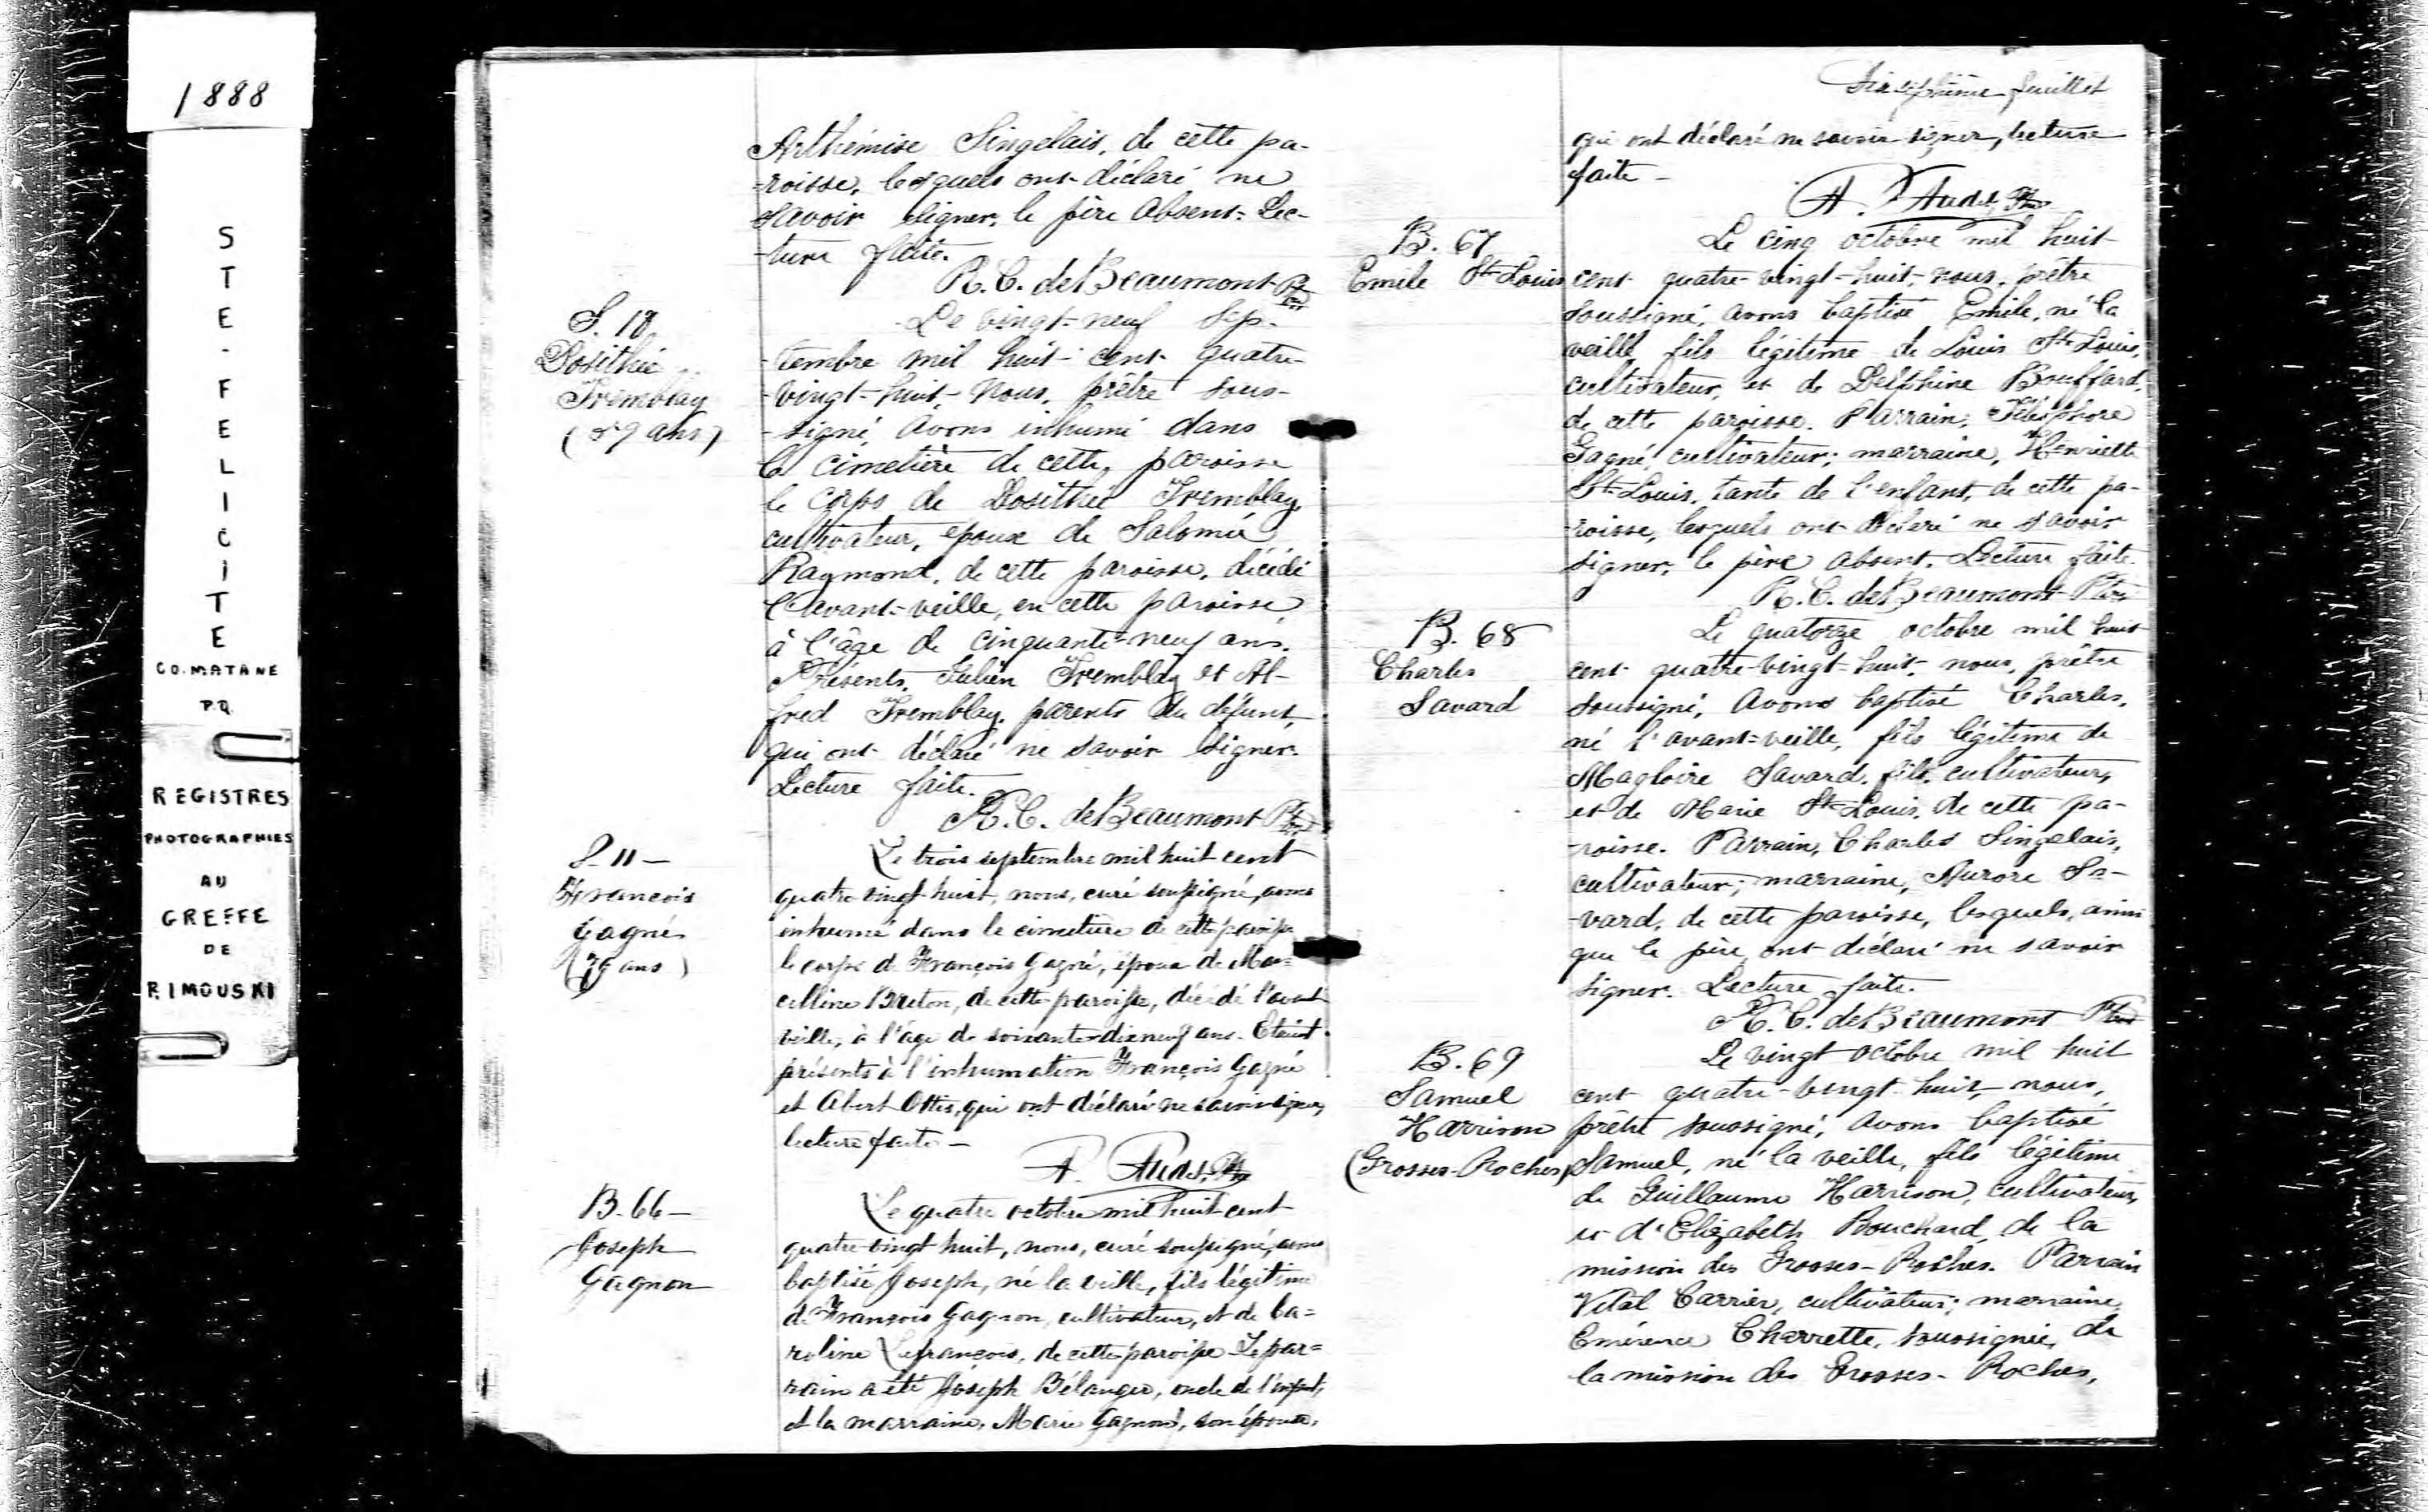 1888
STE-FELICITE
CO. MATANE
P.Q.
REGISTRES
PHOTOGRAPHIES
AU
GREFFE
DE
RIMOUSKI
Arthémise Singelais, de cette pa-
-roisse, lesquels ont déclaré ne
savoir signer, le père absent. Lec-
-ture faite.
R. C. de Beaumont Ptre
S. 18
Dosithée
Tremblay
(59 ans)
Le vingt-neuf sep-
-tembre mil huit-cent-quatre-
-vingt-huit, Nous, prêtre sous-
-signé, avons inhumé dans
le cimetière de cette paroisse
le corps de Dosithée Tremblay,
cultivateur, époux de Salomée
Raymond, de cette paroisse, décédé
l'avant-veille, en cette paroisse,
à l'âge de cinquante-neuf ans.
Présents, Julien Tremblay et Al-
fred Tremblay, parents du défunt,
qui ont déclaré ne savoir signer.
Lecture faite.
R. C. de Beaumont Ptre
S. 11 -
François
Gagné
(79 ans)
Le trois septembre mil huit cent
quatre vingt huit, nous, curé soussigné, avons
inhumé dans le cimetière de cette paroisse
le corps de François Gagné, époux de Mar=
celline Breton, de cette paroisse, décédé l'avant
veille, à l'age de soixante-dix neuf ans. Etaient
présents à l'inhumation François Gagné
et Albert Ottis, qui ont déclaré ne savoir signer,
lecture faite -
A. Audet, Ptre
B. 66 -
Joseph
Gagnon
Le quatre octobre mil huit cent
quatre-vingt huit, nous, curé soussigné, avons
baptisé Joseph, né la veille, fils légitime
de François Gagnon, cultivateur, et de Ca=
roline Lefrançois, de cette paroisse. Le par=
rain a été Joseph Bélanger, oncle de l'enfant,
et la marraine, Marie Gagnon, son épouse,
Dix septième feuillet
qui ont déclaré ne savoir signer, lecture
faite -
A. Audet, Ptre
B. 67
Emile St-Louis
Le cinq octobre mil huit
cent quatre-vingt-huit, nous, prêtre
soussigné, avons baptisé Emile, né la
veille, fils légitime de Louis St-Louis,
cultivateur, et de Delphine Bouffard,
de cette paroisse. Parrain, Télesphore
Gagné, cultivateur; marraine, Henriette
St-Louis, tante de l'enfant, de cette pa-
-roisse, lesquels ont déclaré ne savoir
signer, le père absent. Lecture faite.
R. C. de Beaumont Ptre
B. 68
Charles
Savard
Le quatorze octobre mil huit
cent quatre-vingt-huit, nous, prêtre
soussigné, avons baptisé Charles,
né l'avant-veille, fils légitime de
Magloire Savard, fils, cultivateur,
et de Marie St-Louis, de cette pa-
-roisse. Parrain, Charles Singelais,
cultivateur; marraine, Aurore Sa-
-vard, de cette paroisse, lesquels, ainsi
que le père, ont déclaré ne savoir
signer. Lecture faite.
R. C. de Beaumont Ptre
B. 69
Samuel
Harrison
(Grosses-Roches)
Le vingt octobre mil huit
cent quatre-vingt-huit, nous,
prêtre soussigné, avons baptisé
Samuel, né la veille, fils légitime
de Guillaume Harrison, cultivateur,
et d'Elizabeth Bouchard, de la
mission des Grosses-Roches. Parrain
Vital Carrier, cultivateur; marraine,
Emérence Charrette, soussignée, de
la mission des Grosses-Roches,